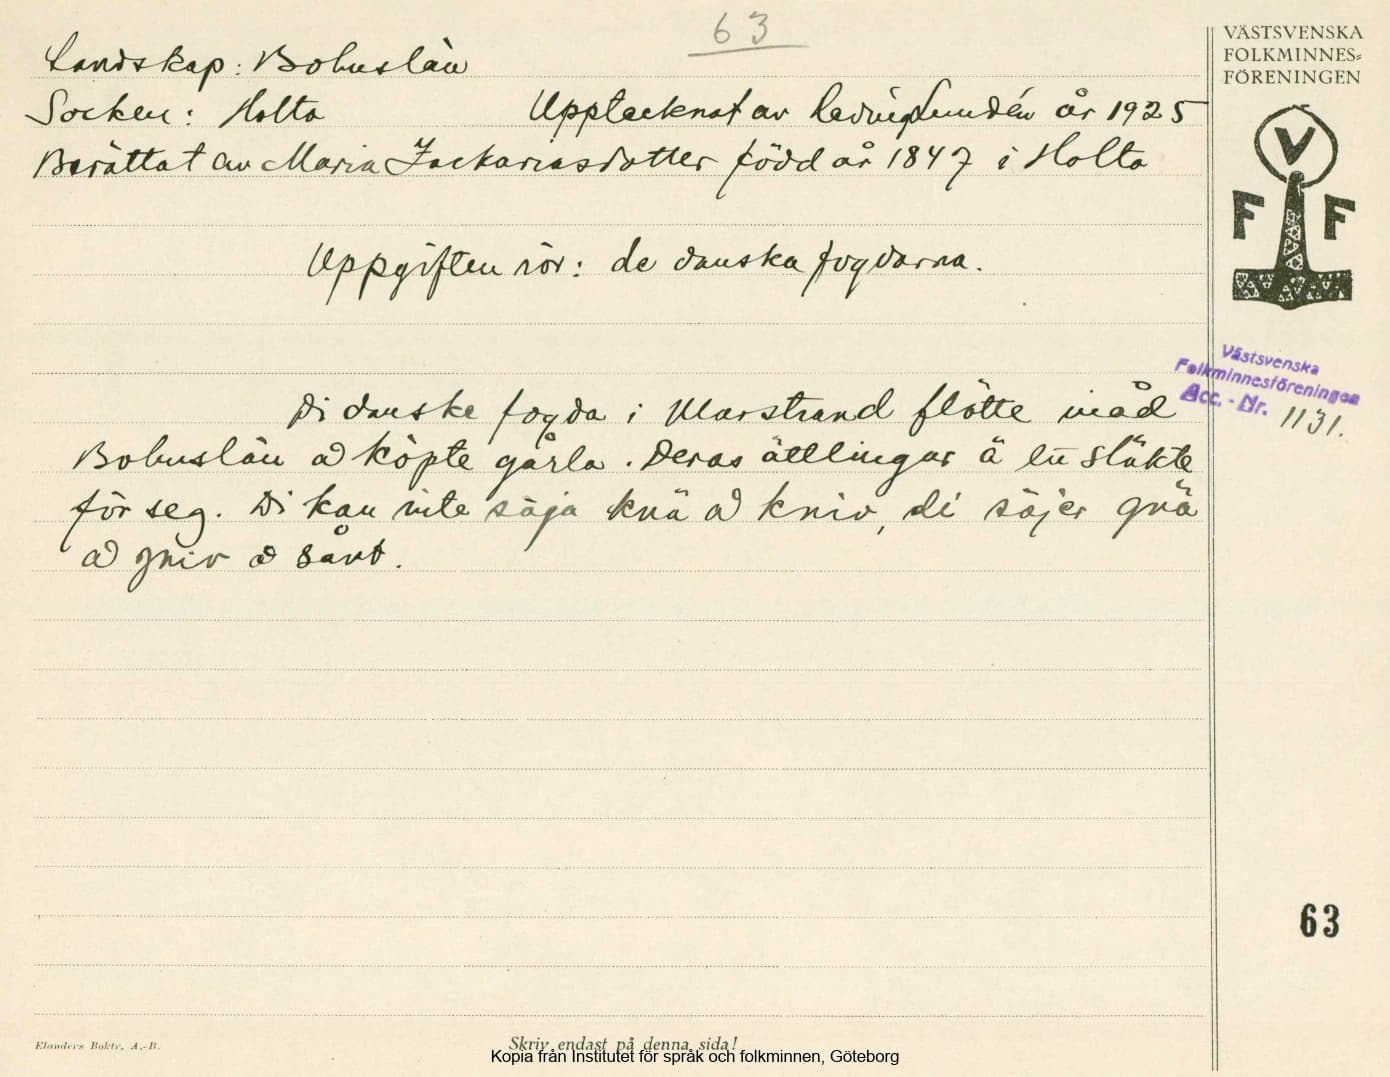 63
Landskap: Bohuslän
Socken: Holta Upptecknat av Hedvig Lundén år 1925
Berättat av Maria Zackariasdotter född år 1847 i Holta
Uppgiften rör: de danska fogdarna.
Di danske fogda i Marstrand flötte inåd
Bohuslän ad köpte gårla. Deras ättlingar ä en släkte
för seg. Di kan inte säja knä ad kniv, di säjer gnä
ad gniv ad sånt.
VÄSTSVENSKA
FOLKMINNES=
FÖRENINGEN
V
F F
Västsvenska
Folkminnesföreningen
Acc. - Nr. 1131.
63
Elanders Boktr. A.-B.
Skriv endast på denna sida!
Kopia från Institutet för språk och folkminnen, Göteborg